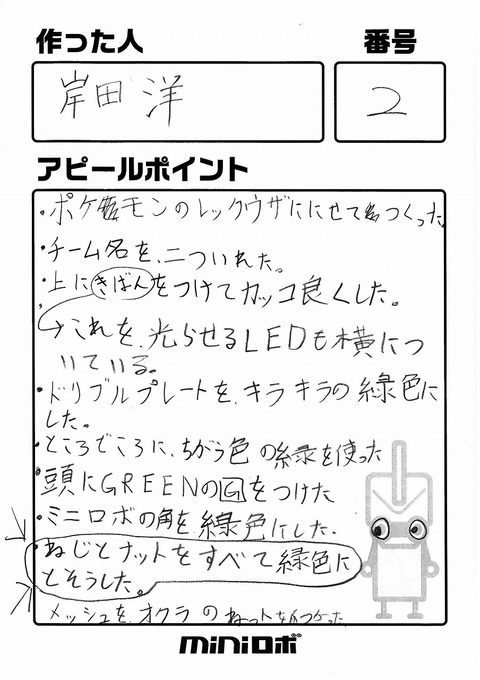 作った人 番号
岸田 洋 2
アピールポイント
・ポケモンのレックウザににせてつくった
・チーム名を、二ついれた。
・上にきばんをつけてカッコ良くした。
→これを、光らせるLEDも横につ
いている。
・ドリブルプレートを、キラキラの緑色に
した。
・ところでころに、ちがう色の緑を使った
・頭にGREENのGをつけた
・ミニロボの角を緑色にした.
・ねじとナットをすべて緑色に
とそうした。
メッシュを、オクラのねっとをつかった
miniロボ